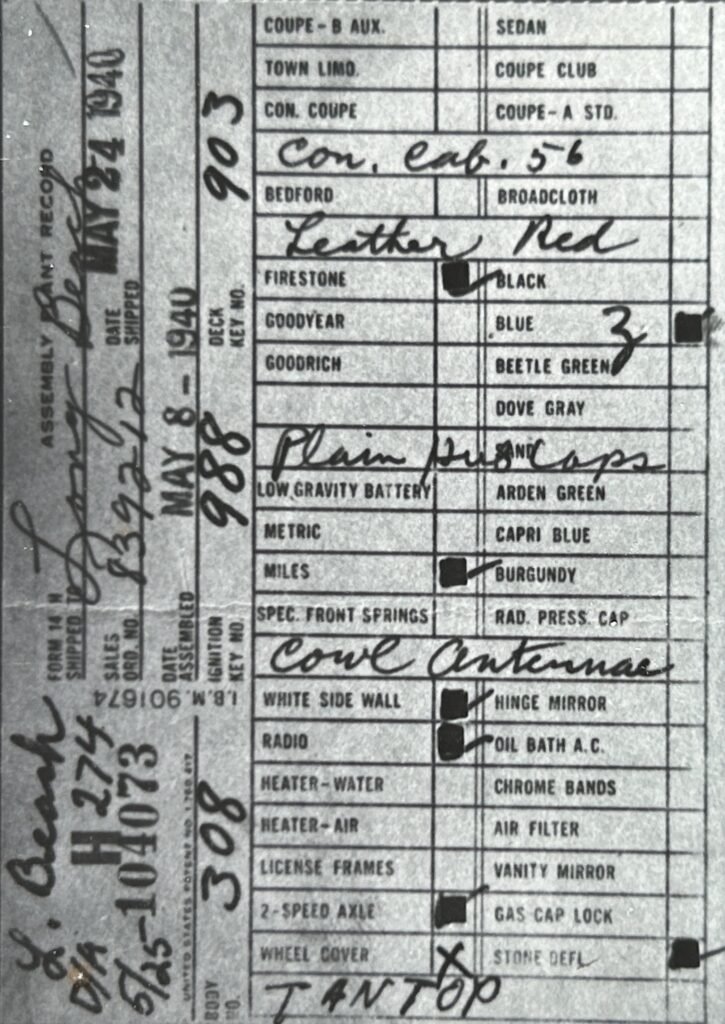 COUPE-B AUX. SEDAN
TOWN LIMO. COUPE CLUB
CON. COUPE COUPE-A STD.
Con. Cab. 56
BEDFORD BROADCLOTH
Leather Red
FIRESTONE BLACK
GOODYEAR BLUE 3
GOODRICH BEETLE GREEN
DOVE GRAY
SAND
Plain Hub Caps
LOW GRAVITY BATTERY ARDEN GREEN
METRIC CAPRI BLUE
MILES BURGUNDY
SPEC. FRONT SPRINGS RAD. PRESS. CAP
Cowl Antennae
WHITE SIDE WALL HINGE MIRROR
RADIO OIL BATH A.C.
HEATER-WATER CHROME BANDS
HEATER-AIR AIR FILTER
LICENSE FRAMES VANITY MIRROR
2-SPEED AXLE GAS CAP LOCK
WHEEL COVER X STONE DEFL.
TAN TOP
FORM 14 H ASSEMBLY PLANT RECORD
SHIPPED TO Long Beach
SALES ORD. NO. 839212 DATE SHIPPED MAY 24 1940
DATE ASSEMBLED MAY 8 - 1940
IGNITION KEY NO. 988 DECK KEY NO. 903
I.B.M. 901674
L. Beach
D/A H 274
5/25-104073
UNITED STATES PATENT NO.
BODY NO. 308